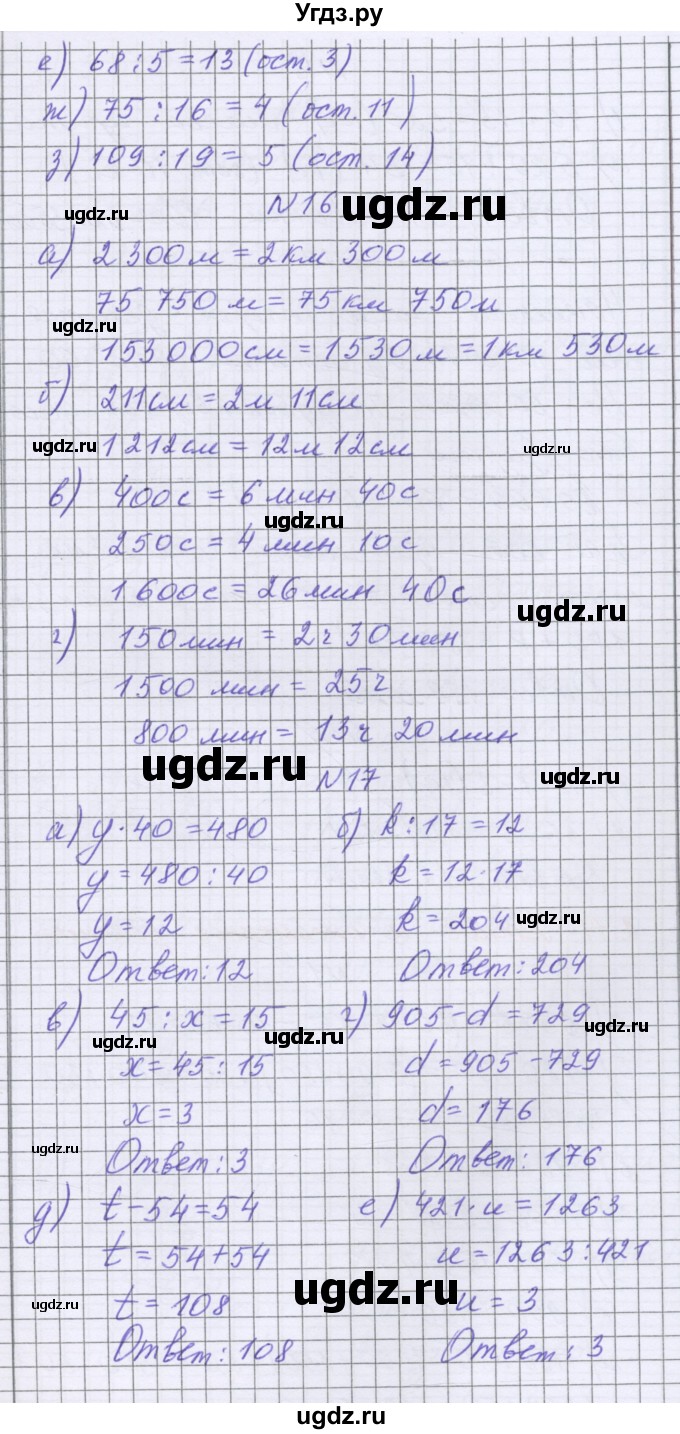 Угдз.ру
е) 68:5=13 (ост. 3)
ж) 75 : 16 = 4 (ост. 11)
з) 109 : 19 = 5 (ост. 14)
ugdz.ru
N16
ugdz.ru
а) 2 300 м = 2 км 300 м
75 750 м = 75 км 750 м
ugdz.ru
153 000 см = 1530 м = 1 км 530 м
б) 211 см = 2 м 11 см
ugdz.ru
1 212 см = 12 м 12 см
ugdz.ru
в) 400 с = 6 мин 40 с
ugdz.ru
250 с = 4 мин 10 с
1 600 с = 26 мин 40 с
ugdz.ru
г) 150 мин = 2 ч 30 мин
1500 мин = 25 ч
800 мин = 13 ч 20 мин
ugdz.ru
N17
ugdz.ru
а) y · 40 = 480
y = 480 : 40
y = 12
Ответ: 12
б) k : 17 = 12
k = 12 · 17
k = 204
ugdz.ru
Ответ: 204
в) 45 : x = 15
ugdz.ru
x = 45 : 15
x = 3
ugdz.ru
Ответ: 3
ugdz.ru
г) 905 - d = 729
ugdz.ru
d = 905 - 729
d = 176
Ответ: 176
д) t - 54 = 54
t = 54 + 54
ugdz.ru
t = 108
Ответ: 108
е) 421 · u = 1263
u = 1263 : 421
ugdz.ru
u = 3
Ответ: 3
ugdz.ru